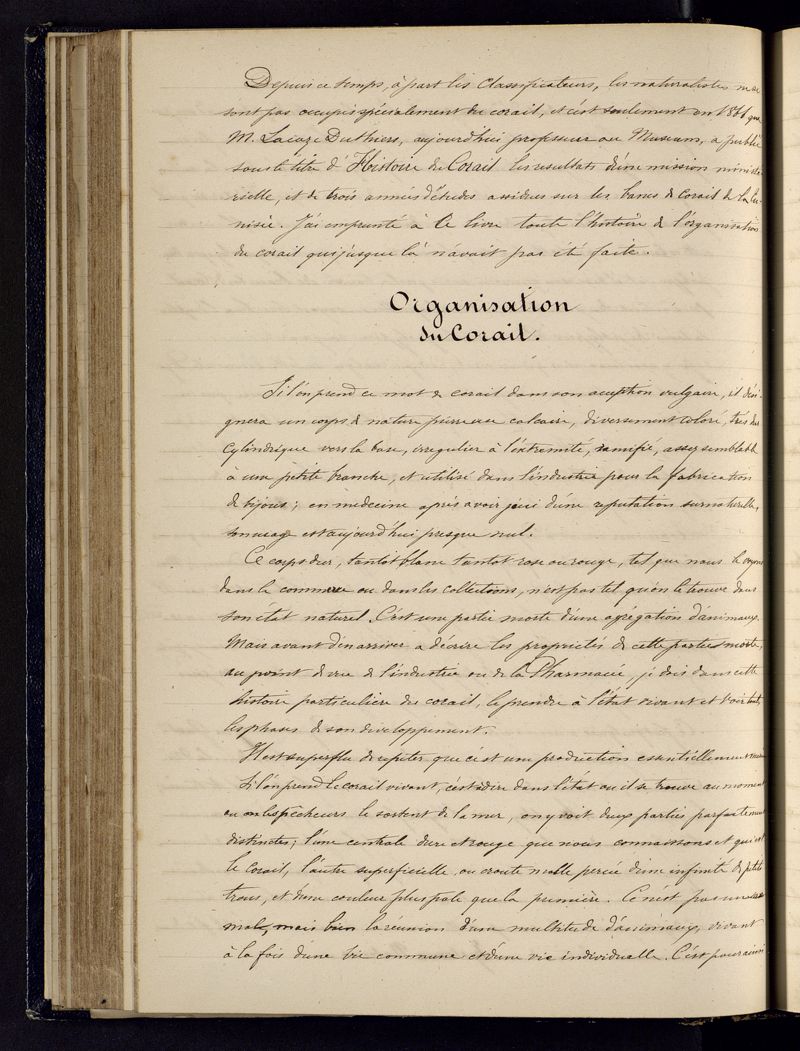 Depuis ce temps, à part les Classificateurs, les naturalistes ne se
sont pas occupés spécialement du corail, et c'est seulement en 1864 que
M. Lacaze Duthiers, aujourd'hui professeur au Museum, a publié
sous le titre d'Histoire du Corail les resultats d'une mission ministé-
rielle, et de trois années d'études assidues sur les bancs de corail de la Tu-
nisie. J'ai emprunté à ce livre toute l'histoire de l'organisation
du corail qui jusque là n'avait pas été faite.
Organisation
du Corail.
Si l'on prend ce mot de corail dans son acception vulgaire, il dési-
gnera un corps de nature pierreuse calcaire, diversement coloré, très dur
cylindrique vers la base, irregulier à l'extremité, ramifié, assez semblable
à une petite branche, et utilisé dans l'industrie pour la fabrication
de bijoux; en médecine après avoir joui d'une reputation surnaturelle,
son usage est aujourd'hui presque nul.
Ce corps dur, tantôt blanc tantot rose ou rouge, tel que nous le voyons
dans le commerce ou dans les collections, n'est pas tel qu'on le trouve dans
son état naturel. C'est une partie morte d'une agrégation d'animaux.
Mais avant d'en arriver a décrire les propriétés de cette partie morte,
au point de vue de l'industrie ou de la Pharmacie, je dois dans cette
histoire particulière du corail, le prendre à l'état vivant et voir toutes
les phases de son developpement.
Il est superflu de repeter que c'est une production essentiellement
Si l'on prend le corail vivant, c'est à dire dans l'état ou il se trouve au moment
ou les pêcheurs le sortent de la mer, on y voit deux parties parfaitement
distinctes; l'une centrale dure et rouge que nous connaissons et qui est
le corail, l'autre superficielle, ou croute molle percée d'une infinité de petits
trous, et d'une couleur plus pale que la première. Ce n'est pas un
mal, mais bien la réunion d'une multitude d'animaux, vivant
à la fois d'une vie commune et d'une vie individuelle. C'est pour ainsi